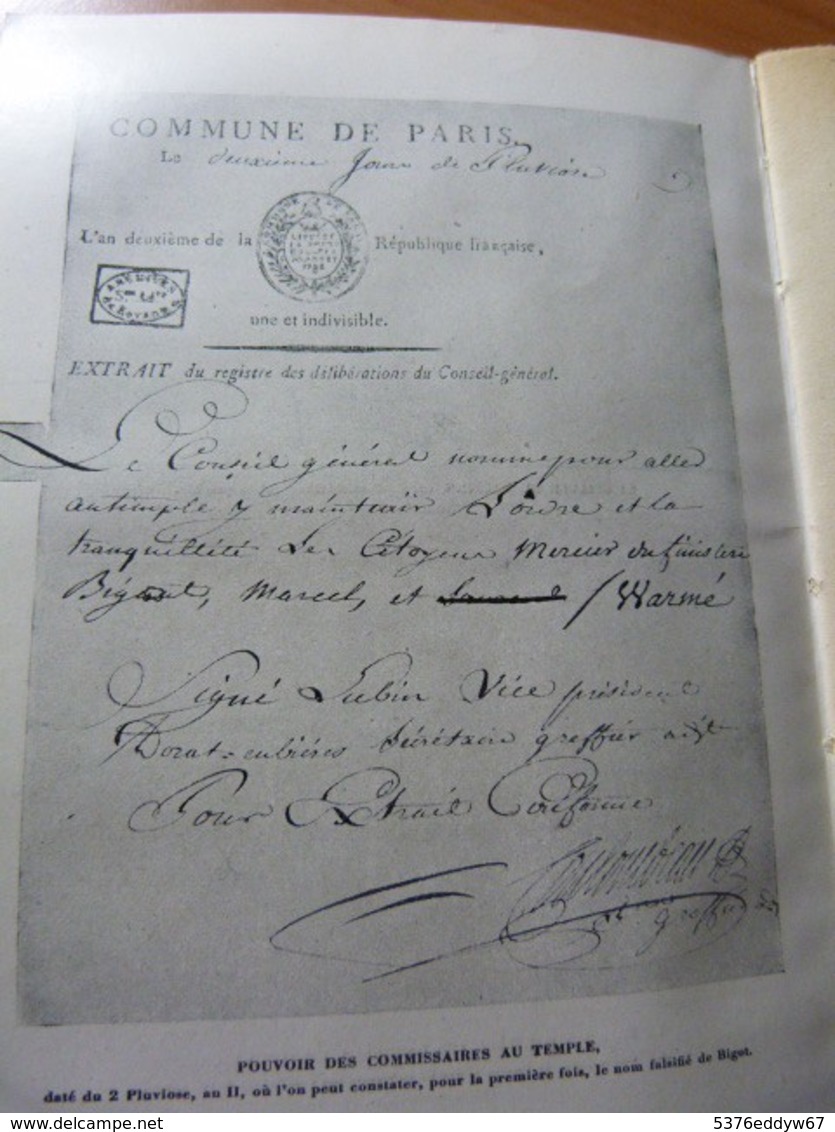 COMMUNE DE PARIS.
Le deuxième Jour de Pluviôse
L'an deuxième de la République française,
COMMUNE DE
ARCHIVES
une et indivisible.
EXTRAIT du registre des délibérations du Conseil-général.
Le Conseil général nomme pour aller
autemple y maintenir L'ordre et la
tranquillité Les Citoyens Mercier du finistere
Bigaut, Marcel, et /Warmé
Signé Lubin Vice président
Dorat-cubières Sécrétaire greffier adjt
Pour Extrait Conforme
greffier
POUVOIR DES COMMISSAIRES AU TEMPLE,
daté du 2 Pluviose, an II, où l'on peut constater, pour la première fois, le nom falsifié de Bigot.
5376eddyw67